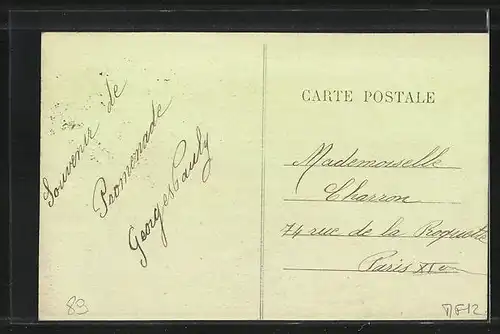 Souvenir de
Promenade
Georges Pauly
CARTE POSTALE
Mademoiselle
Charron
74 rue de la Roquette
Paris XIe
89
DF12